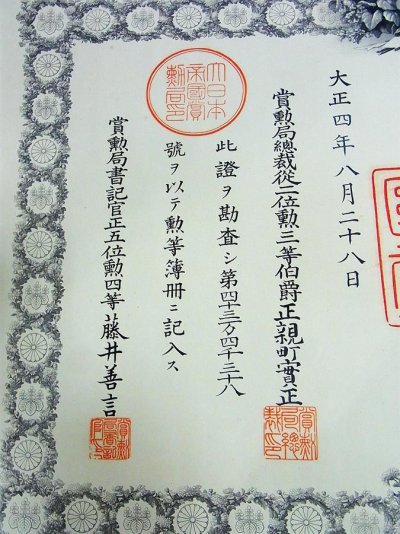 大正四年八月二十八日
賞勲局總裁從二位勲三等伯爵正親町實正
此證ヲ勘査シ第四十三万四千三十八
號ヲ以テ勲等簿册ニ記入ス
賞勲局書記官正五位勲四等藤井善言
大日本
帝國賞
勲局印
賞勲
局總
裁印